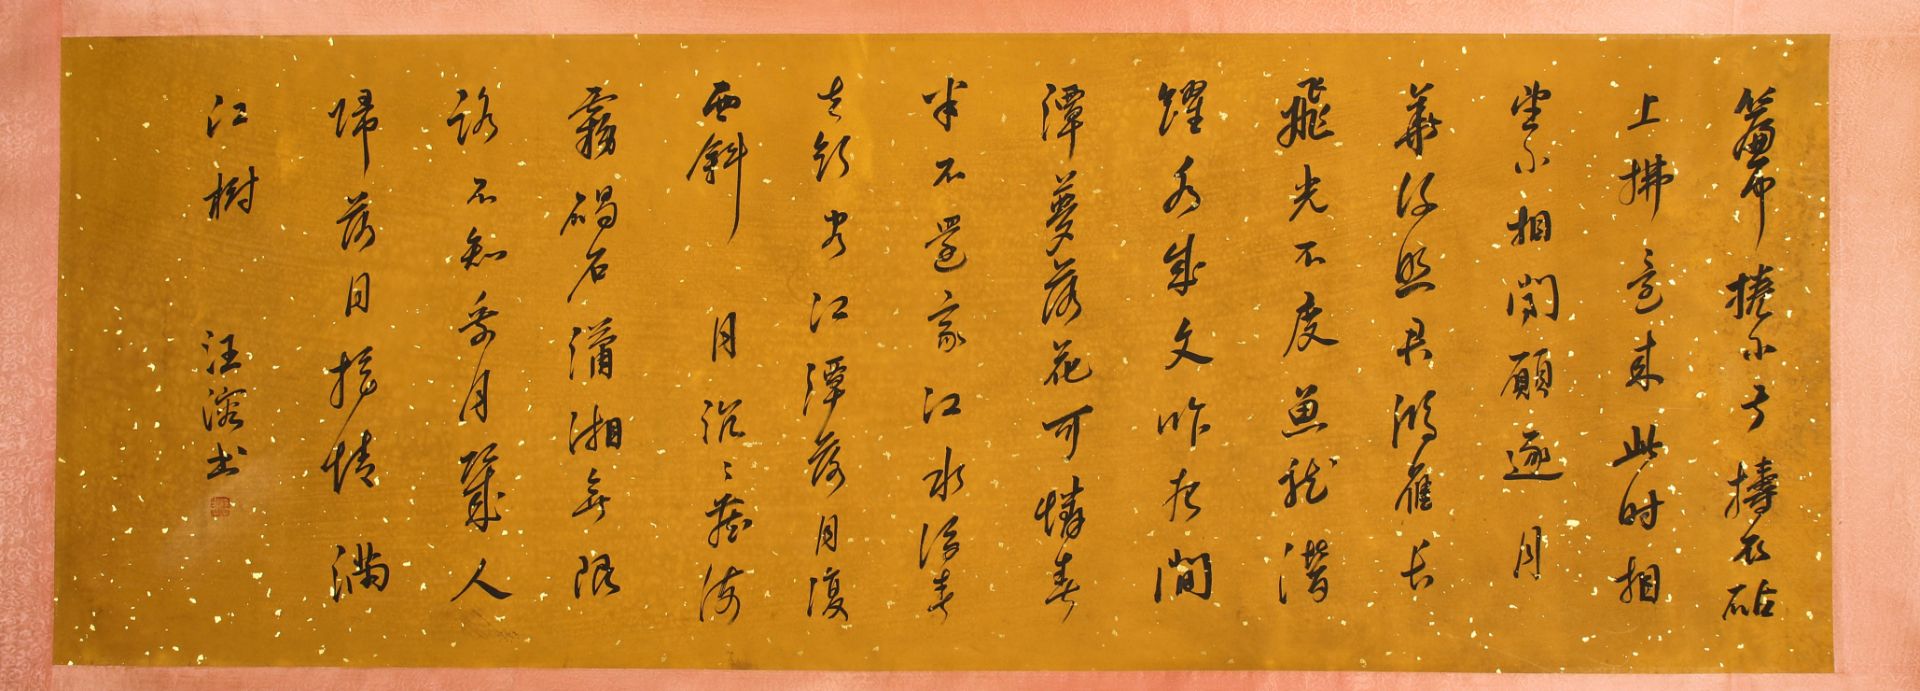 簾中捲不去擣衣砧
上拂還来此时相
望不相聞願逐月
華流照君鴻雁長
飛光不度魚龍潛
躍水成文昨夜閒
潭夢落花可憐春
半不還家江水流春
去欲盡江潭落月復
西斜月沉〻藏海
霧碣石瀟湘無限
路不知乘月幾人
歸落月搖情滿
江樹 汪溶書